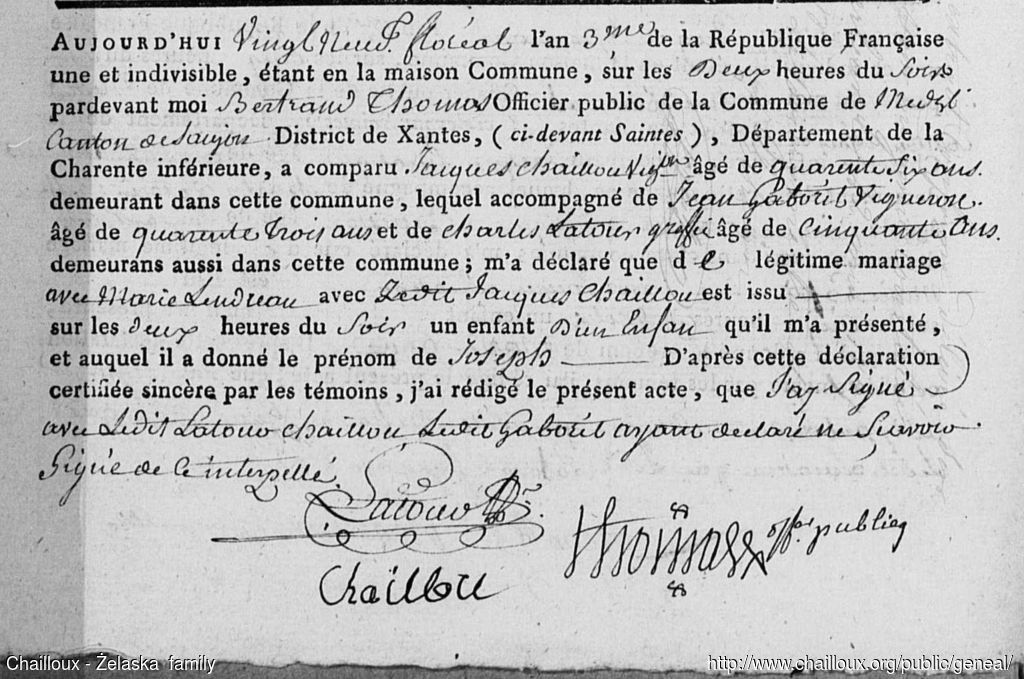 AUJOURD'HUI Vingt Neuf floréal l'an 3me de la République Française
une et indivisible, étant en la maison Commune, sur les Deux heures du Soir
pardevant moi Bertrand Thomas Officier public de la Commune de
Canton de Saujon District de Xantes, ( ci-devant Saintes ), Département de la
Charente inférieure, a comparu Jacques Chaillou Vignon âgé de quarente Six ans.
demeurant dans cette commune, lequel accompagné de Jean Gaborit Vigneron.
âgé de quarente trois ans et de charles Latour greffié âgé de Cinquante Ans.
demeurans aussi dans cette commune ; m'a déclaré que de légitime mariage
avec Marie Lendreau avec Ledit Jacques Chaillou est issu
sur les deux heures du Soir un enfant D'un Enfan qu'il m'a présenté,
et auquel il a donné le prénom de Joseph D'après cette déclaration
certifiée sincère par les témoins, j'ai rédigé le présent acte, que J'ay Signé
avec Ledit Latour chaillou Ledit Gaborit ayant declaré ne Scavoir
Signé de Ce interpellé.
Latour
Thomas off.er publicq
Chaillou
Chailloux - Żelaska family
http://www.chailloux.org/public/geneal/